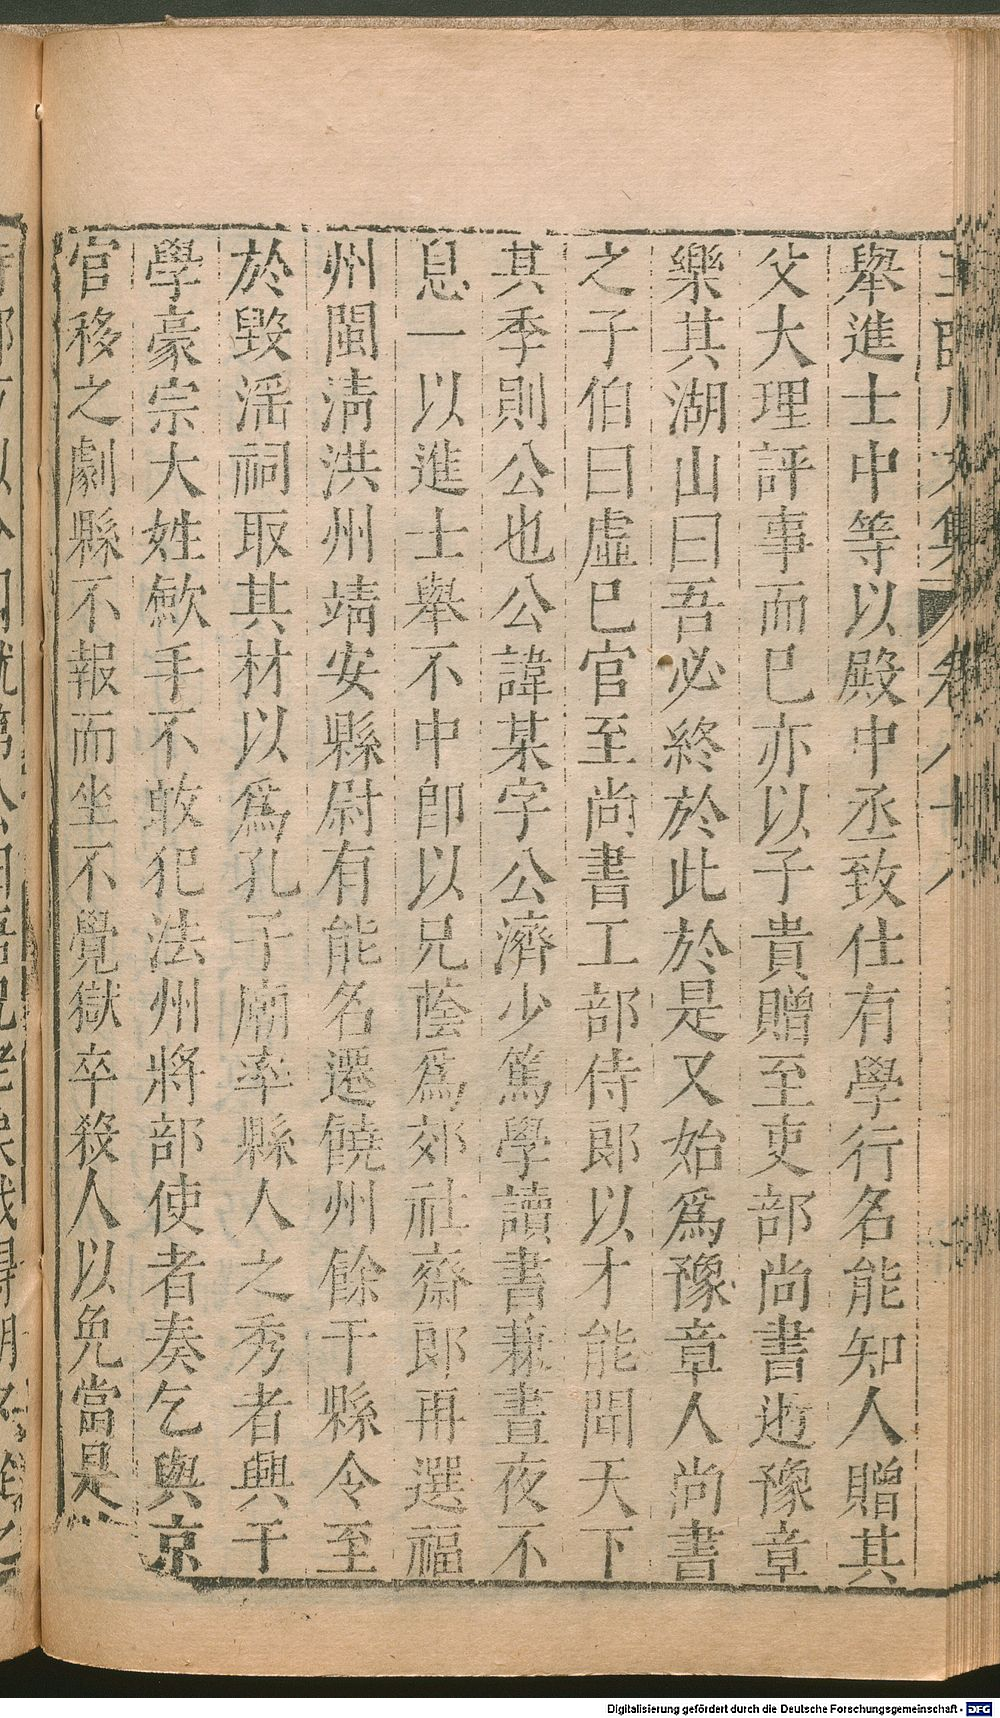 舉進士中等以殿中丞致仕有學行名能知人贈其
父大理評事而已亦以子貴贈至吏部尚書逝豫章
樂其湖山曰吾必終於此於是又始爲豫章人尚書
之子伯曰虛已官至尚書工部侍郎以才能聞天下
其季則公也公諱某字公濟少篤學讀書兼晝夜不
息一以進士舉不中卽以兄蔭爲郊社齋郎再選福
州閩清洪州靖安縣尉有能名遷饒州餘干縣令至
於毀淫祠取其材以爲孔子廟率縣人之秀者興于
學豪宗大姓歛手不敢犯法州將部使者奏乞與京
官移之劇縣不報而坐不覺獄卒殺人以免當是
Digitalisierung gefördert durch die Deutsche Forschungsgemeinschaft - DFG